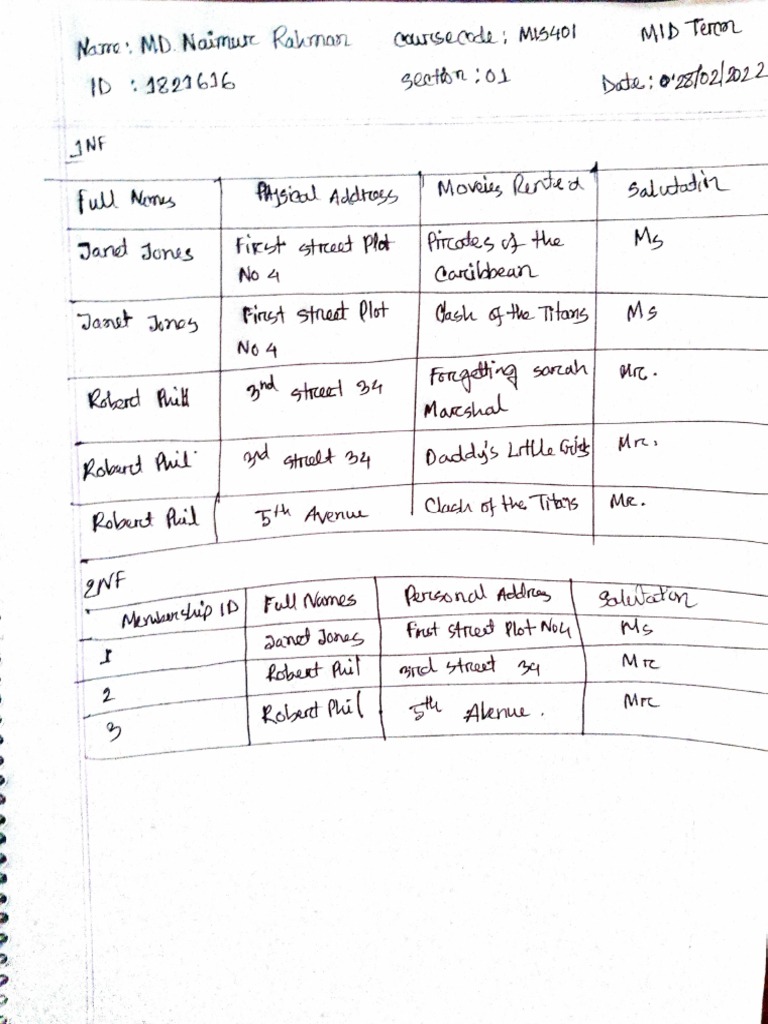 Name: MD. Naimur Rahman Course code: MIS401 MID Term
ID : 1821616 Section: 01 Date: 28/02/2022
1NF
Full Names Physical Address Moveies Rented Salutatin
Janet Jones First street Plot No 4 Pirates of the Caribbean Ms
Janet Jones First street Plot No 4 Clash of the Titans Ms
Robert Phill 3rd street 34 Forgetting sarah Marshal Mr.
Robert Phil 3rd street 34 Daddy's Little Girls Mr.
Robert Phil 5th Avenue Clash of the Titans Mr.
2NF
Membership ID Full Names Personal Addres Salutation
1 Janet Jones First street Plot No4 Ms
2 Robert Phil 3rd street 34 Mr
3 Robert Phil 5th Avenue. Mr